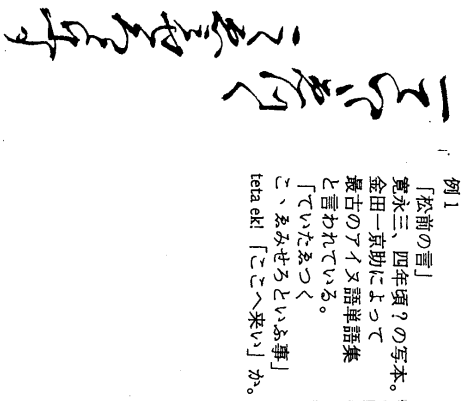 例1
「松前の言」
寛永三、四年頃?の写本。
金田一京助によって
最古のアイヌ語単語集
と言われている。
「ていたゑつく
こ、ゑみせろといふ事」
teta ek! 「ここへ来い」か。